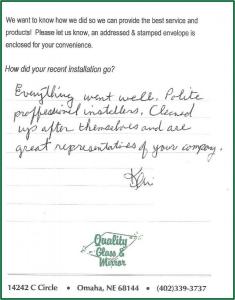 We want to know how we did so we can provide the best service and
products! Please let us know, an addressed & stamped envelope is
enclosed for your convenience.
How did your recent installation go?
Everything went well. Polite
proffesional installers. Cleaned
up after themselves and are
great representatives of your company.
Quality
Glass &
Mirror
14242 C Circle • Omaha, NE 68144 • (402)339-3737